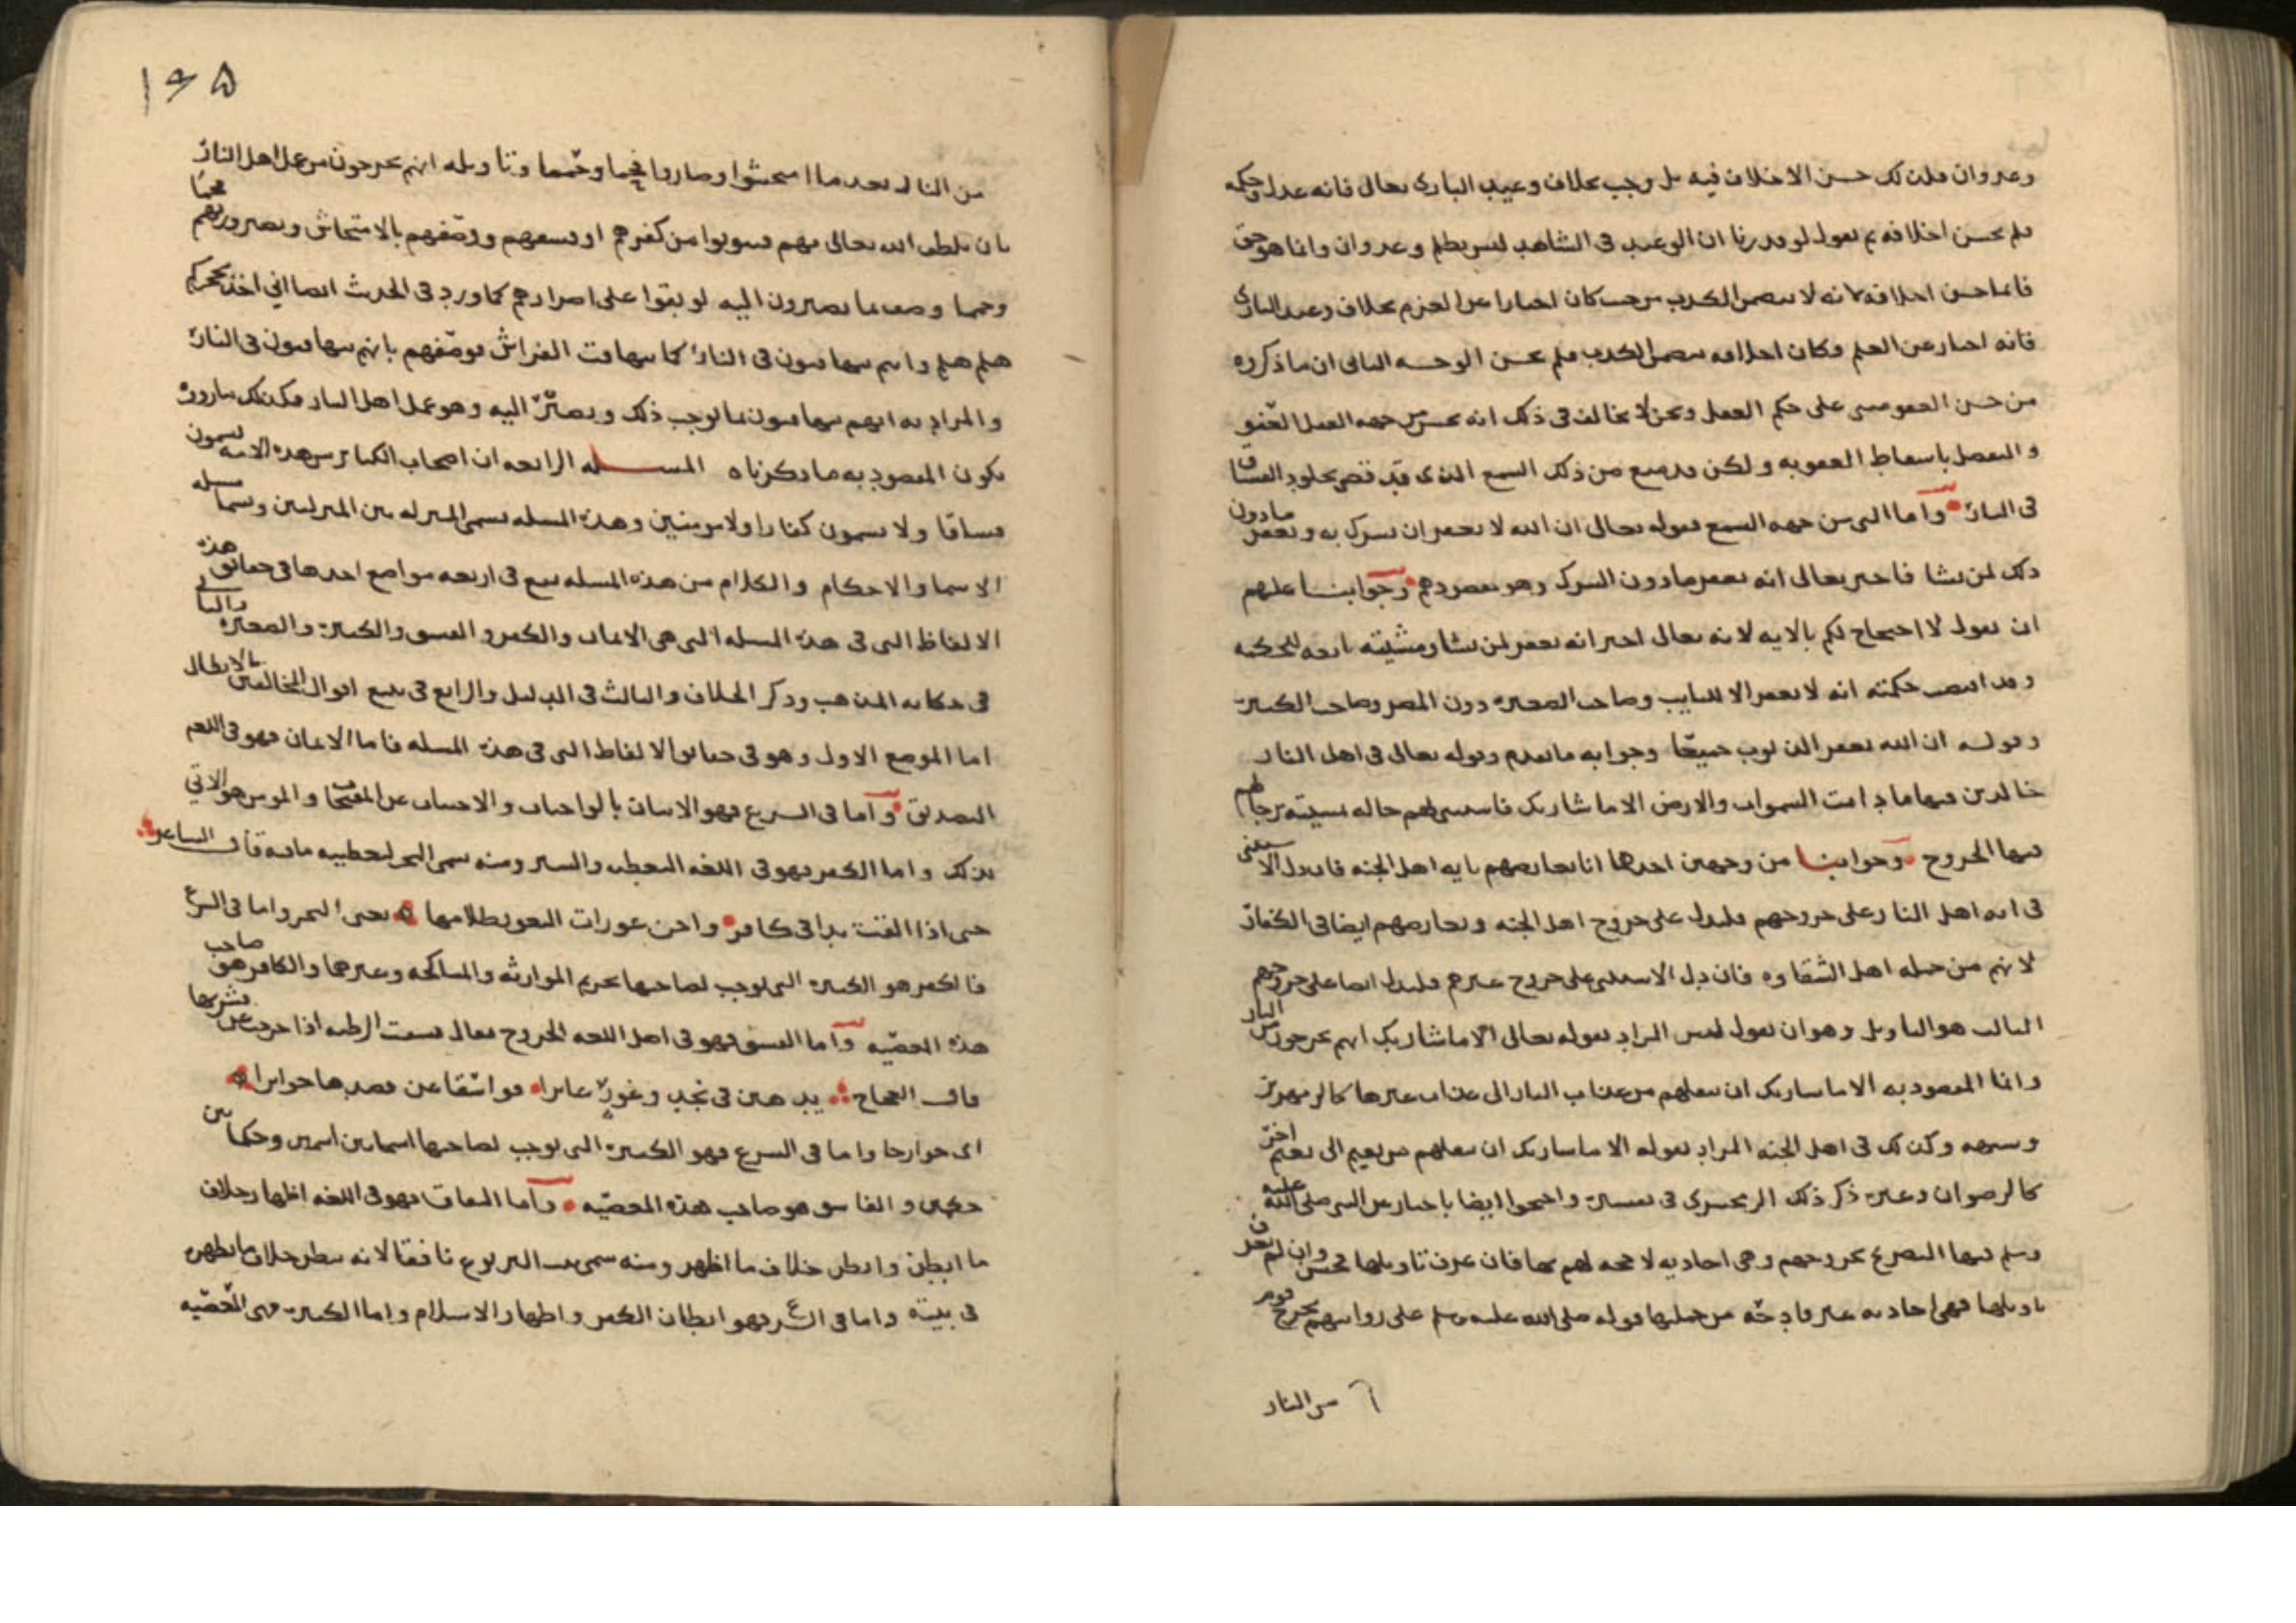 وعدوان فلذلك حسن الاخلاف فيه بل وجب بخلاف وعيد الباري تعالى فانه عدل وحكمة
فلم يحسن اخلافه ثم نقول لو قدرنا ان الوعيد في الشاهد ليس بظلم وعدوان وانما هو حق
فانما حسن اخلافه لانه لا يتضمن الكذب من حيث كان اخبارا عن العزم بخلاف وعيد الباري
فانه اخبار عن العلم وكان اخلافه يتضمن الكذب فلم يحسن الوجه الثاني ان ما ذكروه
من حسن العفو مبني على حكم العقل ونحن لا نخالف في ذلك انه يحسن من جهة العقل العفو
والتفضل باسقاط العقوبة ولكن قد منع من ذلك السمع الذي قد قضى بخلود الفساق
في النار وأما التي من جهة السمع فقوله تعالى ان الله لا يغفر ان يشرك به ويغفر ما دون
ذلك لمن يشا فاخبر تعالى انه يغفر ما دون الشرك وهو مقصودهم وجوابنا عليهم
ان نقول لا احتجاج لكم بالاية لانه تعالى اخبر انه يغفر لمن يشا ومشيته تابعة للحكمة
وقد اقتضت حكمته انه لا يغفر الا للتايب وصاحب الصغيرة دون المصر وصاحب الكبيرة
وقوله ان الله يغفر الذنوب جميعا وجوابه ما تقدم وقوله تعالى في اهل النار
خالدين فيها ما دامت السموات والارض الا ما شا ربك فاستثنى لهم حالة
فيها الخروج وجوابنا من وجهين احدها انا نعارضهم باية اهل الجنة فان دل الاستثنى
في اية اهل النار على خروجهم فليدل على خروج اهل الجنة ونعارضهم ايضا في الكفار
لانهم من جملة اهل الشقاوة فان دل الاستثنى على خروج غيرهم فليدل ايضا على خروجهم
الثالث هو التاويل وهو ان نقول ليس المراد بقوله تعالى الا ما شا ربك انهم يخرجون من النار
وانما المقصود به الا ما شا ربك ان ينقلهم من عذاب النار الى عذاب غيرها كالزمهرير
وشبهه وكذلك في اهل الجنة المراد بقوله الا ما شا ربك ان ينقلهم من نعيم الى نعيم اخر
كالرضوان وغيره ذكر ذلك الزمخشري في تفسيره واحتجوا ايضا باخبار عن النبي صلى الله عليه
وسلم فيها التصريح بخروجهم وهي احادية لا حجة لهم بها فان عرف تاويلها فحسن وان لم يعرف
تاويلها فهي احادية غير قادحة من جملتها قوله صلى الله عليه وسلم على روايتهم يخرج قوم
من النار
١٣٥
من النار بعد ما امتحشوا وصاروا فحما وحمما وتاويله انهم يخرجون من عمل اهل النار
بان يلطف الله تعالى بهم فيتوبوا من كفرهم او فسقهم ووصفهم بالامتحاش وبصيرورتهم فحما
وحمما وصف بما يصيرون اليه لو بقوا على اصرارهم كما ورد في الحديث ايضا اني اخذ بحجزكم
هلم هلم وانتم تتهافتون في النار كما يتهافت الفراش فوصفهم بانهم يتهافتون في النار
والمراد به انهم يتهافتون بما يوجب ذلك ويصير اليه وهو عمل اهل النار فكذلك ما رووه
يكون المقصود به ما ذكرناه المسئلة الرابعة ان اصحاب الكبائر من هذه الامة يسمون
فساقا ولا يسمون كفارا ولا مومنين وهذه المسلة تسمى المنزلة بين المنزلتين وتسمى مسلة
الاسما والاحكام والكلام من هذه المسلة يقع في اربعة مواضع احدها في حقائق هذه
الالفاظ التي في هذه المسلة التي هي الايمان والكفر والفسق والكبيرة والصغيرة والثاني
في حكاية المذهب وذكر الخلاف والثالث في الدليل والرابع في تتبع اقوال المخالفين بالابطال
اما الموضع الاول وهو في حقائق الالفاظ التي في هذه المسلة فاما الايمان فهو في اللغة
التصديق وأما في الشرع فهو الاتيان بالواجبات والاجتناب عن المقبحات والمومن هو الاتي
بذلك واما الكفر فهو في اللغة التغطية والستر ومنه سمي البحر لتغطيته ما فيه قال الشاعر
حتى اذا القت يدا في كافر واجن عورات الثغور ظلامها يعني البحر واما في الشرع
فالكفر هو الكبيرة التي توجب لصاحبها تحريم الموارثة والمناكحة وغيرهما والكافر هو صاحب
هذه المعصية وأما الفسق فهو في اصل اللغة الخروج يقال فسقت الرطبة اذا خرجت عن قشرها
قال العجاج يذهبن في نجد وغورا غائرا فواسقا عن قصدها جوائرا
اي خوارجا واما في الشرع فهو الكبيرة التي توجب لصاحبها اسما بين اسمين وحكما بين
حكمين والفاسق هو صاحب هذه المعصية وأما النفاق فهو في اللغة اظهار خلاف
ما ابطن وابطن خلاف ما اظهر ومنه سمي بيت اليربوع نافقا لانه يبطن خلاف ما يظهر
في بيته واما في الشرع فهو ابطان الكفر واظهار الاسلام واما الكبيرة فهي المعصية